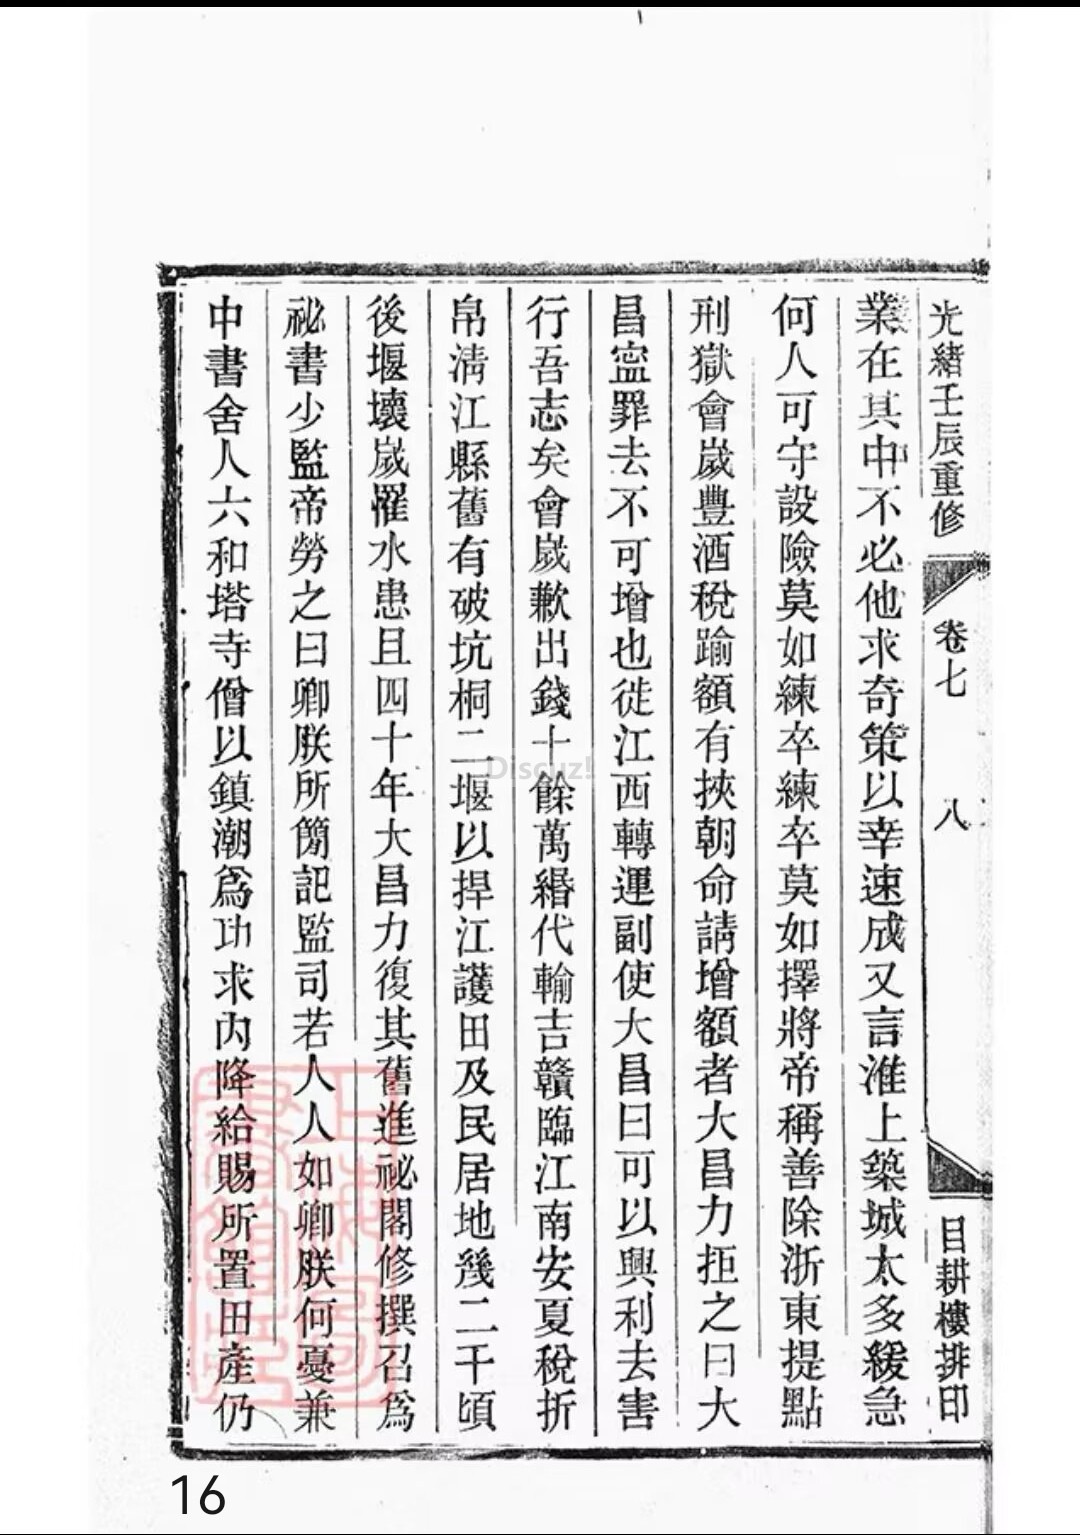 光緖壬辰重修
卷七
八
目耕樓排印
業在其中不必他求奇策以幸速成又言淮上築城太多緩急
何人可守設險莫如練卒練卒莫如擇將帝稱善除浙東提點
刑獄會嵗豐酒稅踰額有挾朝命請增額者大昌力拒之曰大
昌寍罪去不可增也徙江西轉運副使大昌曰可以興利去害
行吾志矣會嵗歉出錢十餘萬緡代輸吉贛臨江南安夏稅折
帛淸江縣舊有破坑桐二堰以捍江護田及民居地幾二千頃
後堰壞嵗罹水患且四十年大昌力復其舊進祕閣修撰召爲
祕書少監帝勞之曰卿朕所簡記監司若人人如卿朕何憂兼
中書舍人六和塔寺僧以鎮潮爲功求內降給賜所置田產仍
Discuz!
16